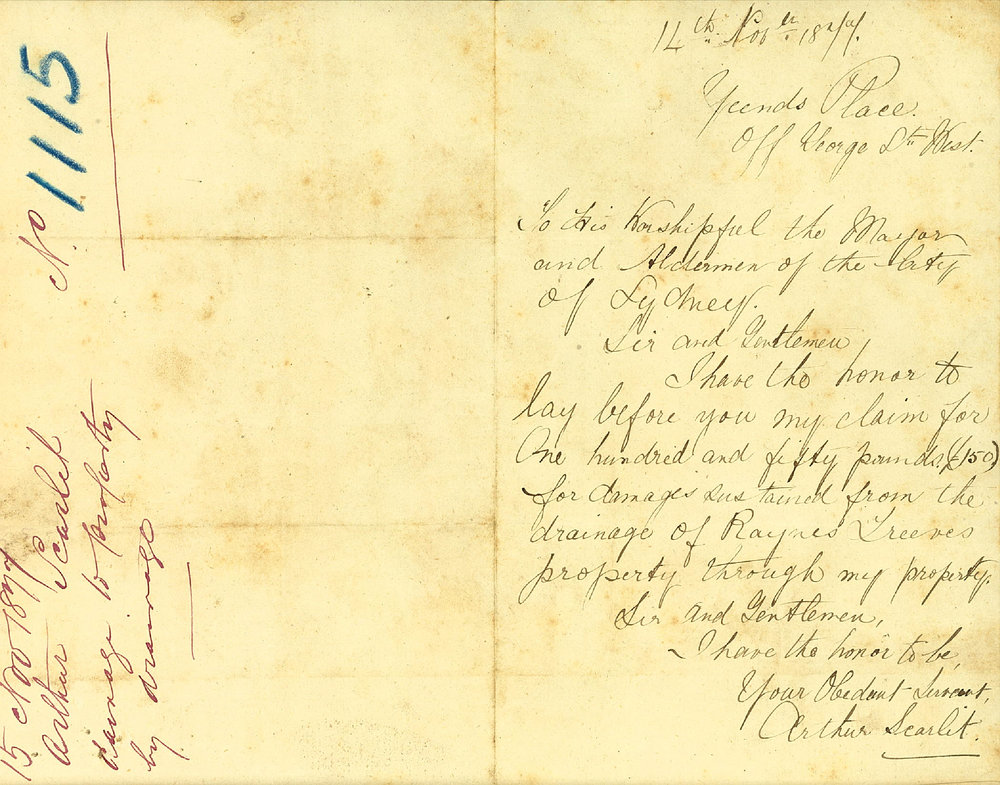 No 1115
15 Nov 1877
Arthur Scarlit
damage to property
by drainage
14th Novr 1877.
Yeends Place.
Off George St. West.
To His Worshipful the Mayor
and Aldermen of the City
of Sydney.
Sir and Gentlemen,
I have the honor to
lay before you my claim for
One hundred and fifty pounds, (£150)
for damages sustained from the
drainage of Raynes Treeves
property through my property.
Sir and Gentlemen,
I have the honor to be,
Your Obedant Servant,
Arthur Scarlit.